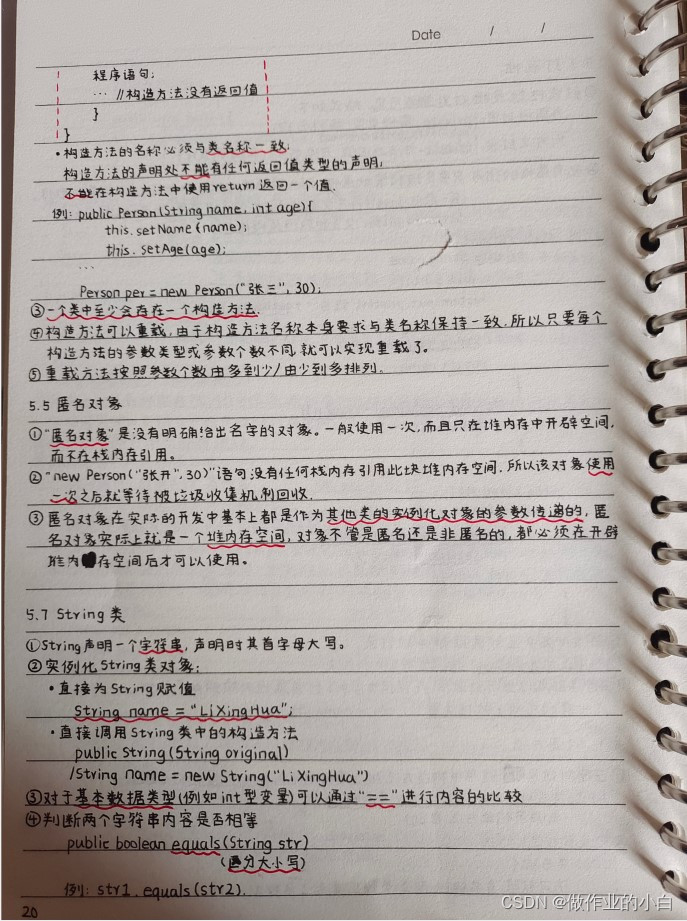 Date / /
程序语句;
… //构造方法没有返回值
}
}
·构造方法的名称必须与类名称一致;
构造方法的声明处不能有任何返回值类型的声明;
不能在构造方法中使用return返回一个值.
例: public Person(String name, int age){
this.setName(name);
this.setAge(age);
…
Person per = new Person("张三", 30);
③一个类中至少会存在一个构造方法.
④构造方法可以重载,由于构造方法名称本身要求与类名称保持一致,所以只要每个
构造方法的参数类型或参数个数不同,就可以实现重载了。
⑤重载方法按照参数个数由多到少/由少到多排列.
5.5 匿名对象
①"匿名对象"是没有明确给出名字的对象。一般使用一次,而且只在堆内存中开辟空间,
而不在栈内存引用。
②"new Person("张开",30)"语句没有任何栈内存引用此块堆内存空间.所以该对象使用
一次之后就等待被垃圾收集机制回收.
③匿名对象在实际的开发中基本上都是作为其他类的实例化对象的参数传递的,匿
名对象实际上就是一个堆内存空间,对象不管是匿名还是非匿名的,都必须在开辟
存空间后才可以使用。
5.7 String类
①String声明一个字符串,声明时其首字母大写。
②实例化String类对象:
·直接为String赋值
String name = "LiXingHua";
·直接调用String类中的构造方法
public String(String original)
/String name = new String("LiXingHua")
③对于基本数据类型(例如int型变量)可以通过"=="进行内容的比较
④判断两个字符串内容是否相等
public boolean equals(String str)
(区分大小写)
例: str1.equals(str2).
20
CSDN @做作业的小白